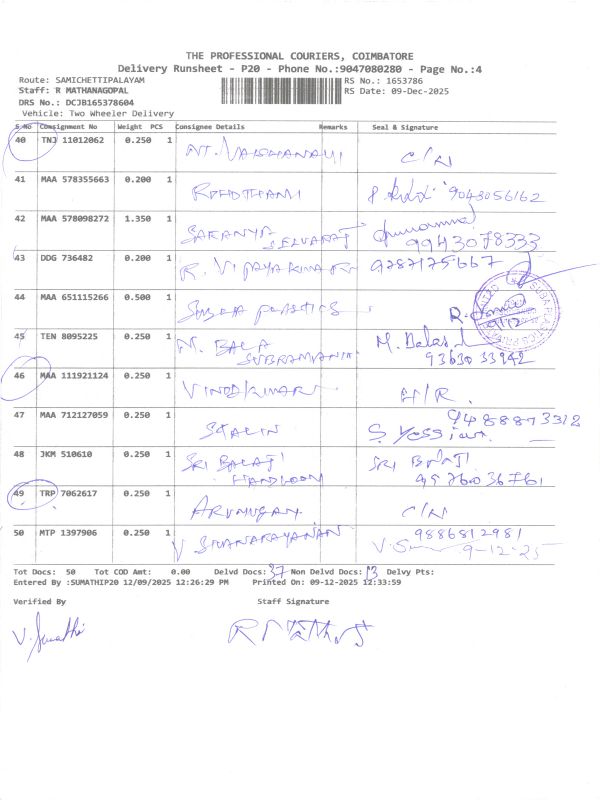 THE PROFESSIONAL COURIERS, COIMBATORE
Delivery Runsheet - P20 - Phone No.:9047080280 - Page No.:4
Route: SAMICHETTIPALAYAM RS No.: 1653786
Staff: R MATHANAGOPAL RS Date: 09-Dec-2025
DRS No.: DCJB165378604
Vehicle: Two Wheeler Delivery
S.No Consignment No Weight PCS Consignee Details Remarks Seal & Signature
40 TNJ 11012062 0.250 1 C/N
41 MAA 578355663 0.200 1 9043056162
42 MAA 578098272 1.350 1 SARANYA SELVARAJ
9943078333
43 DDG 736482 0.200 1 R. VIJAYAKUMAR 9787175667
44 MAA 651115266 0.500 1 SUBAA PLASTICS
45 TEN 8095225 0.250 1 M. BALA SUBRAMANIA
93630 33942
46 MAA 111921124 0.250 1 VINOTHKUMAR
47 MAA 712127059 0.250 1 STALIN 9488873312
48 JKM 510610 0.250 1 SRI BALAJI HANDLOOM SRI BALAJI
9976036761
49 TRP 7062617 0.250 1 ARUMUGAM C/N
50 MTP 1397906 0.250 1 V SIVANARAYANAN 9886812981
9-12-25
Tot Docs: 50 Tot COD Amt: 0.00 Delvd Docs: 37 Non Delvd Docs: 13 Delvy Pts:
Entered By :SUMATHIP20 12/09/2025 12:26:29 PM Printed On: 09-12-2025 12:33:59
Verified By Staff Signature
V. Sumathi